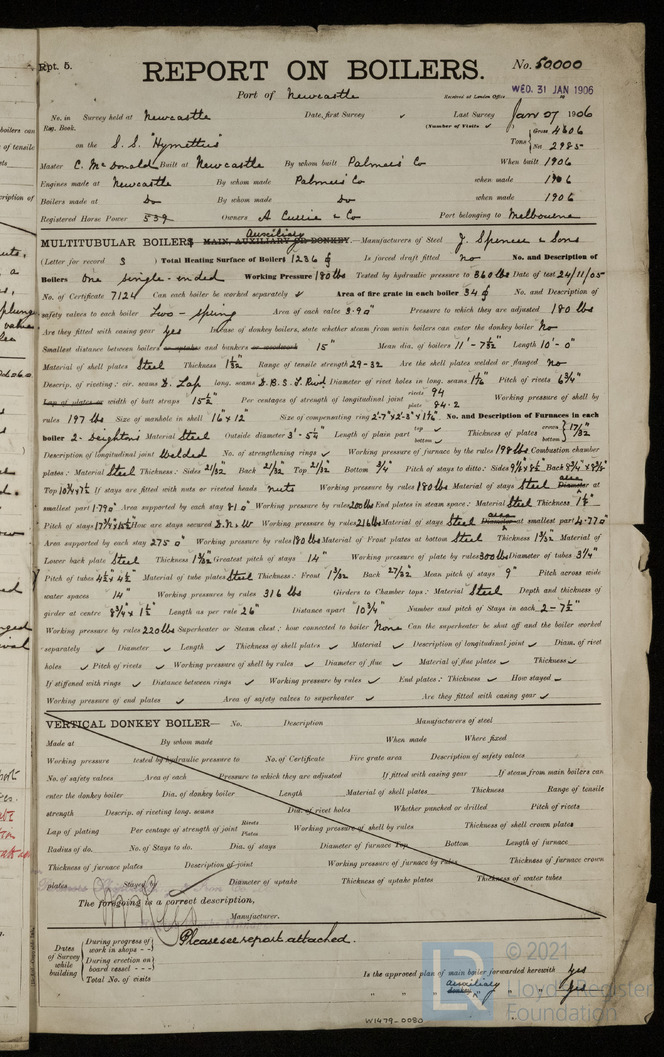 Rpt. 5.
REPORT ON BOILERS.
No. 50000
Port of Newcastle
Received at London Office WED. 31 JAN 1906
No. in Survey held at Newcastle Date, first Survey ✓ Last Survey Jan 07 1906
Reg. Book. (Number of Visits ✓
on the S.S. "Hymettus" Tons Gross 4606 Net 2985
Master C. McDonald Built at Newcastle By whom built Palmers' Co When built 1906
Engines made at Newcastle By whom made Palmers' Co when made 1906
Boilers made at Do By whom made Do when made 1906
Registered Horse Power 539 Owners A Currie & Co Port belonging to Melbourne
MULTITUBULAR BOILERS MAIN, AUXILIARY OR DONKEY.— Auxiliary Manufacturers of Steel J. Spencer & Sons
(Letter for record S ) Total Heating Surface of Boilers 1236 Is forced draft fitted no No. and Description of
Boilers One single-ended Working Pressure 180 lbs Tested by hydraulic pressure to 360 lbs Date of test 24/11/05
No. of Certificate 7124 Can each boiler be worked separately ✓ Area of fire grate in each boiler 34 No. and Description of
safety valves to each boiler Two - spring Area of each valve 3.90" Pressure to which they are adjusted 180 lbs
Are they fitted with easing gear yes In case of donkey boilers, state whether steam from main boilers can enter the donkey boiler No
Smallest distance between boilers or uptakes and bunkers or woodwork 15" Mean dia. of boilers 11'-7 9/32" Length 10'-0"
Material of shell plates Steel Thickness 1 1/32 Range of tensile strength 29-32 Are the shell plates welded or flanged no
Descrip. of riveting: cir. seams D. Lap long. seams D.B.S. T. Rivd Diameter of rivet holes in long. seams 1 1/2 Pitch of rivets 6 3/4"
Lap of plates or width of butt straps 15 1/2" Per centages of strength of longitudinal joint rivets 94 plate 84.2 Working pressure of shell by
rules 197 lbs Size of manhole in shell 16" x 12" Size of compensating ring No. and Description of Furnaces in each
boiler 2- Deighton's Material Steel Outside diameter 3'-5 1/4" Length of plain part top ✓ bottom ✓ Thickness of plates crown bottom 17/32"
Description of longitudinal joint Welded No. of strengthening rings ✓ Working pressure of furnace by the rules 198 lbs Combustion chamber
plates: Material Steel Thickness: Sides 21/32 Back 21/32" Top 21/32 Bottom 3/4" Pitch of stays to ditto: Sides 9 1/8" x 8 1/2 Back 8 3/4" x 8 5/8"
Top 10 3/4 x 7 1/2 If stays are fitted with nuts or riveted heads nuts Working pressure by rules 180 lbs Material of stays Steel Diameter area at
smallest part 1.790" Area supported by each stay 81.0" Working pressure by rules 200 lbs End plates in steam space: Material Steel Thickness 1 1/8"
Pitch of stays How are stays secured D.N. & W. Working pressure by rules 216 lbs Material of stays Steel Diameter area at smallest part 4.770"
Area supported by each stay 275.0" Working pressure by rules 180 lbs Material of Front plates at bottom Steel Thickness 1 3/32 Material of
Lower back plate Steel Thickness 1 3/32 Greatest pitch of stays 14" Working pressure of plate by rules 300 lbs Diameter of tubes 3 1/4"
Pitch of tubes 4 1/2 x 4 1/2 Material of tube plates Steel Thickness: Front 1 3/32 Back 27/32" Mean pitch of stays 9" Pitch across wide
water spaces 14" Working pressures by rules 316 lbs Girders to Chamber tops: Material Steel Depth and thickness of
girder at centre 8 3/4 x 1 1/2 Length as per rule 26" Distance apart 10 3/4" Number and pitch of Stays in each 2 - 7 1/2"
Working pressure by rules 220 lbs Superheater or Steam chest; how connected to boiler None Can the superheater be shut off and the boiler worked
separately ✓ Diameter ✓ Length ✓ Thickness of shell plates ✓ Material ✓ Description of longitudinal joint ✓ Diam. of rivet
holes ✓ Pitch of rivets ✓ Working pressure of shell by rules ✓ Diameter of flue ✓ Material of flue plates ✓ Thickness ✓
If stiffened with rings ✓ Distance between rings ✓ Working pressure by rules ✓ End plates: Thickness ✓ How stayed ✓
Working pressure of end plates ✓ Area of safety valves to superheater ✓ Are they fitted with easing gear ✓
VERTICAL DONKEY BOILER— No. Description Manufacturers of steel
Made at By whom made When made Where fixed
Working pressure tested by hydraulic pressure to No. of Certificate Fire grate area Description of safety valves
No. of safety valves Area of each Pressure to which they are adjusted If fitted with easing gear If steam from main boilers can
enter the donkey boiler Dia. of donkey boiler Length Material of shell plates Thickness Range of tensile
strength Descrip. of riveting long. seams Dia. of rivet holes Whether punched or drilled Pitch of rivets
Lap of plating Per centage of strength of joint Rivets Plates Working pressure of shell by rules Thickness of shell crown plates
Radius of do. No. of Stays to do. Dia. of stays Diameter of furnace Top Bottom Length of furnace
Thickness of furnace plates Description of joint Working pressure of furnace by rules Thickness of furnace crown
plates Stayed by Diameter of uptake Thickness of uptake plates Thickness of water tubes
The foregoing is a correct description,
Manufacturer.
Dates of Survey while building During progress of work in shops - - During erection on board vessel - - - Total No. of visits
Please see report attached.
Is the approved plan of main boiler forwarded herewith yes
" " " auxiliary donkey " " " yes
W1479-0080
© 2021
LR
Lloyd's Register
Foundation